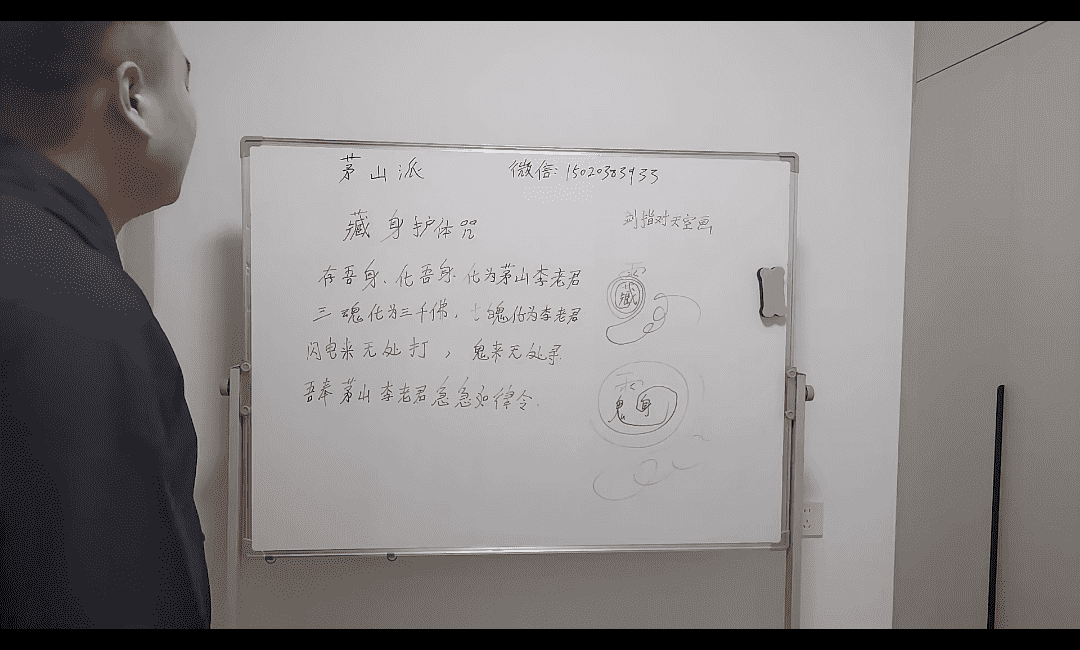 茅山派
微信:15020383933
藏身护体咒
剑指对天空画
存吾身、化吾身.化为茅山李老君
三魂化为三千佛,七魄化为李老君
闪电来无处打,鬼来无处寻.
吾奉茅山李老君急急如律令.
雨
藏
雨
鬼身